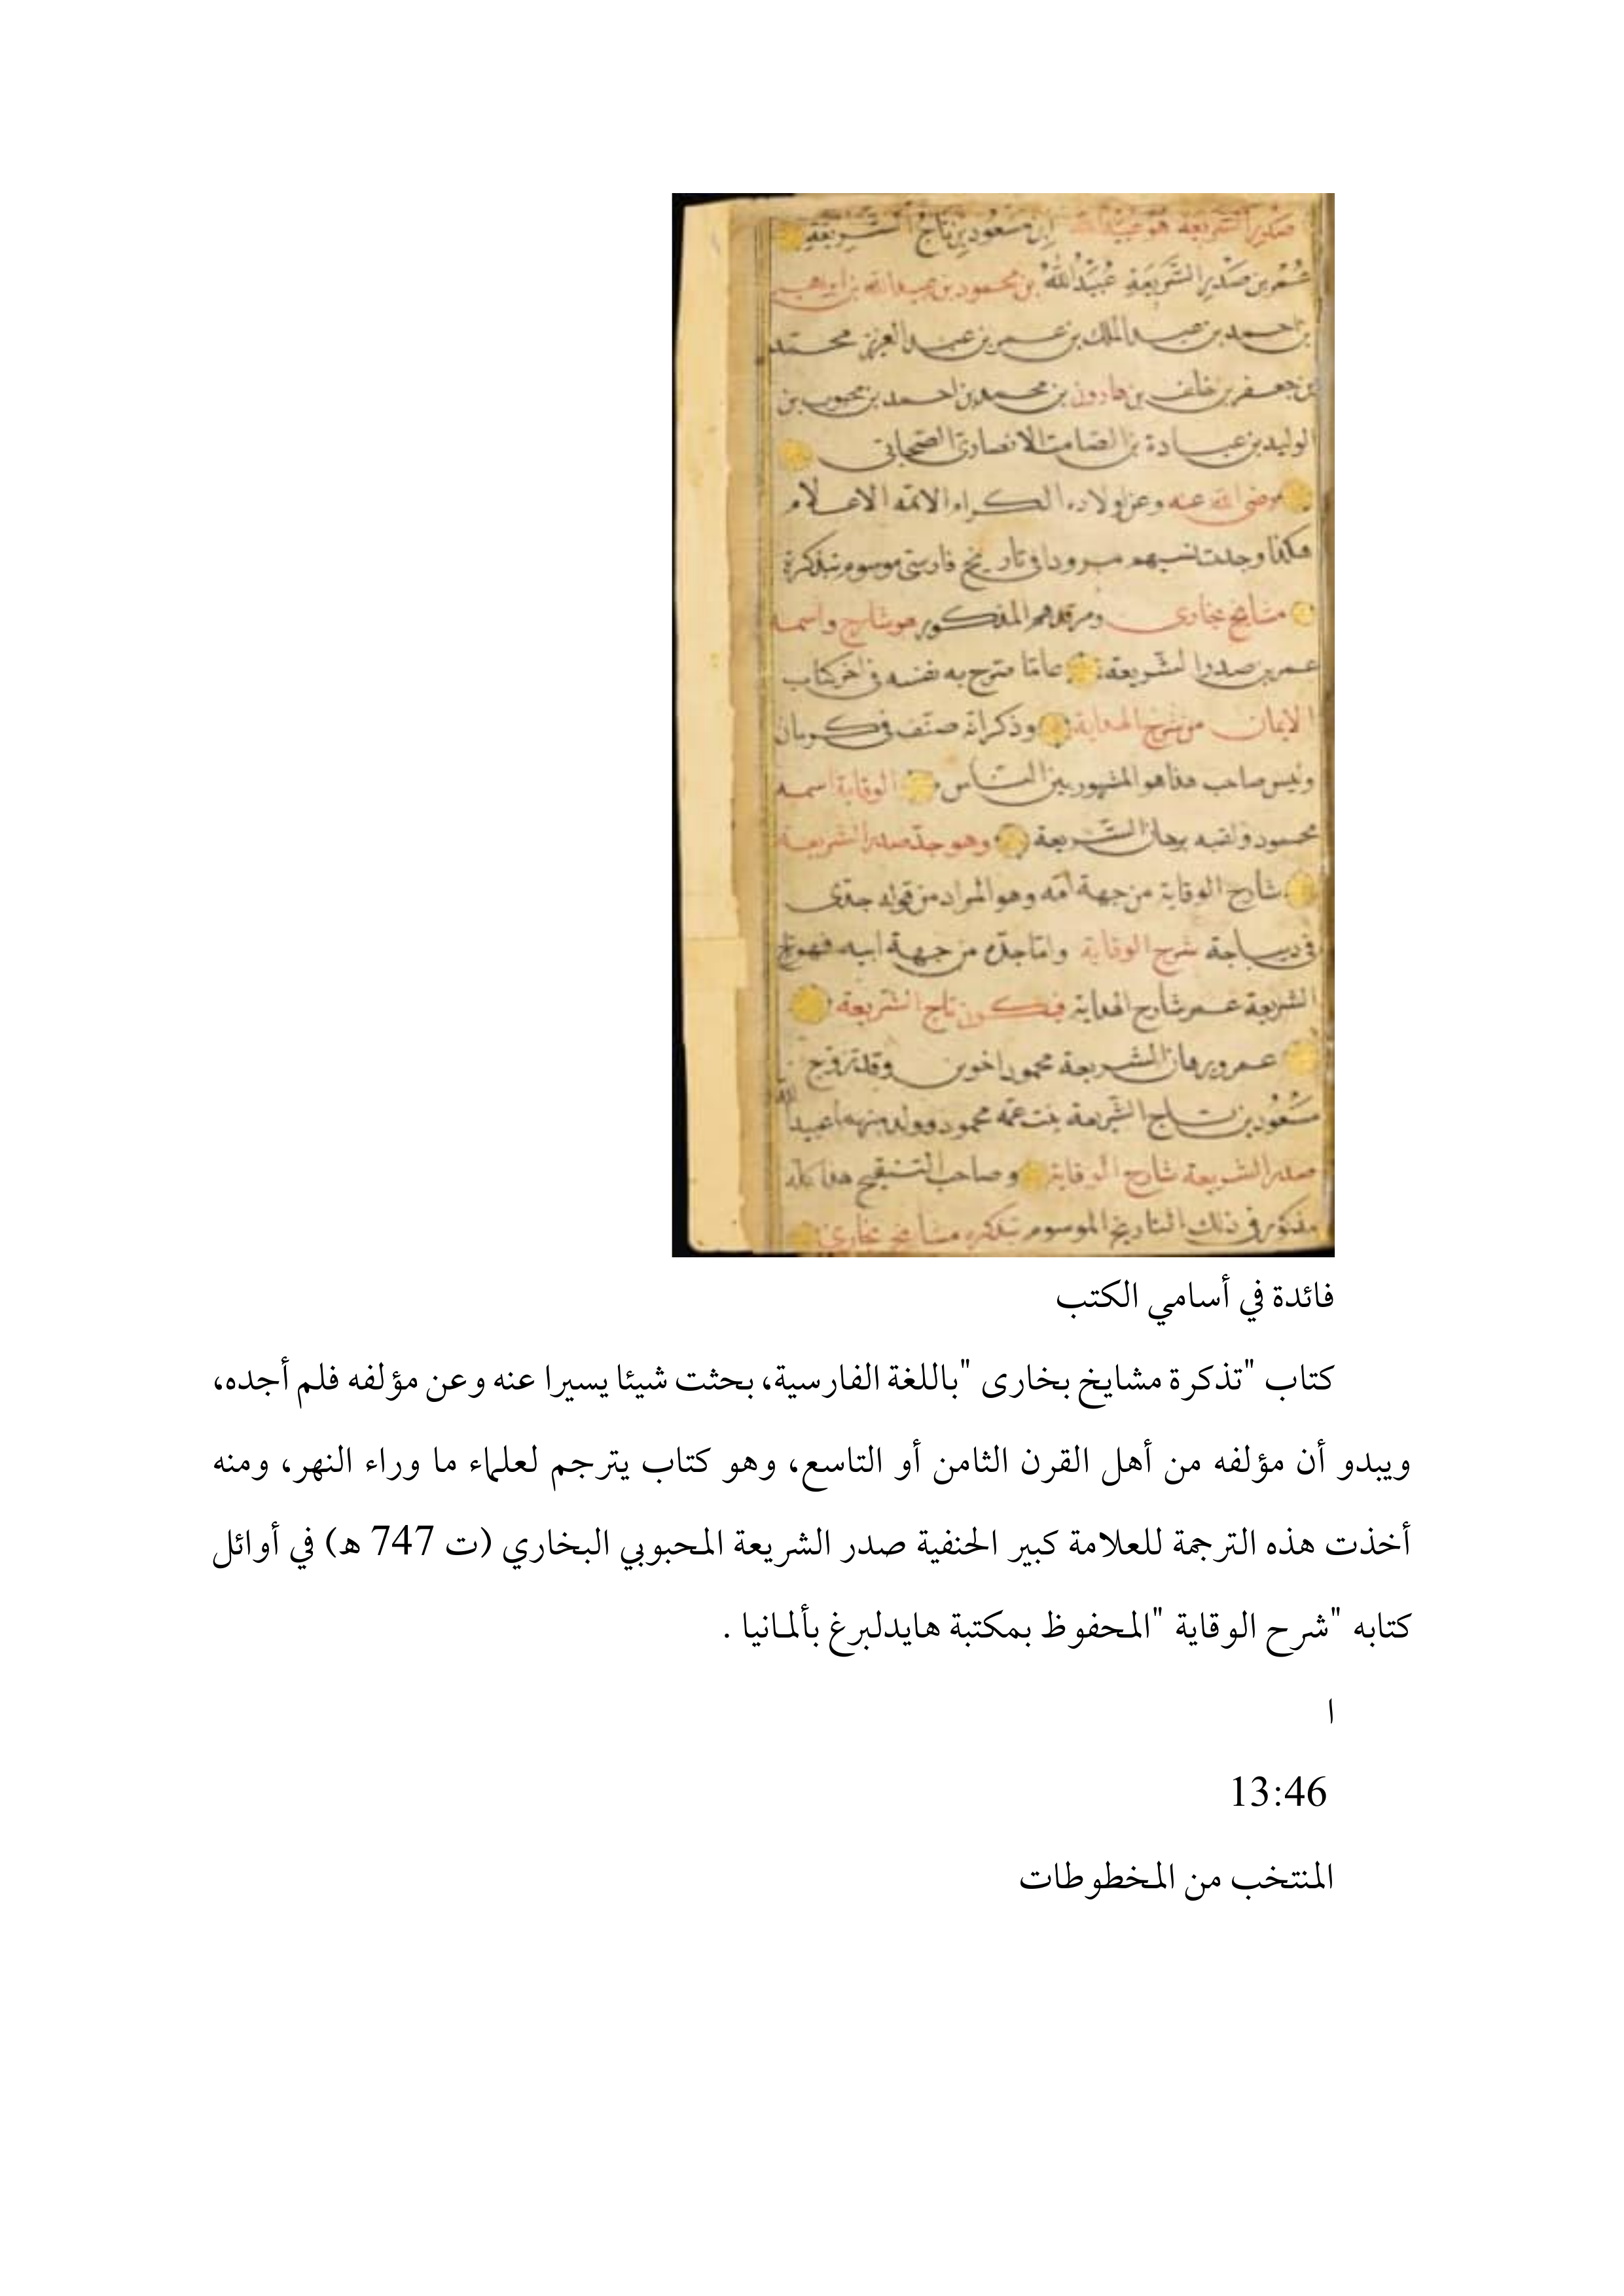 صدر الشريعة هو عبيد الله ابن مسعود بن تاج الشريعة
عمر بن صدر الشريعة عبيد الله بن محمود بن
بن احمد بن عبد الملك بن عمر بن عبد العزيز محمد
بن جعفر بن خلف بن هارون بن محمد بن احمد بن محبوب بن
الوليد بن عبادة بن الصامت الانصاري الصحابي
رضى الله عنه وعن اولاده الكرام الائمه الاعلام
هكذا وجدت نسبهم في تاريخ فارسي موسوم بتذكرة
مشايخ بخارى ومرقدهم المذكور واسمه
عمر بن صدر الشريعة به نفسه في اخر كتاب
الايمان من شرح الهداية وذكر انه صنف في كرمان
وليس صاحب هذا هو المشهور بين الناس الوقاية اسمه
محمود ولقبه برهان الشريعة وهو جد صدر الشريعة
شارح الوقاية من جهة امه وهو المراد من قوله جدى
في ديباجة شرح الوقاية واما جده من جهة ابيه فهو تاج
الشريعة عمر شارح الهداية فيكون تاج الشريعة
عمر وبرهان الشريعة محمود اخوين وقد تزوج
مسعود بن تاج الشريعة بنت عمه محمود وولد منهما عبيد الله
صدر الشريعة شارح الوقاية وصاحب التنقيح هذا كله
مذكور في ذلك التاريخ الموسوم بتذكره مشايخ بخارى
فائدة في أسامي الكتب
كتاب "تذكرة مشايخ بخارى "باللغة الفارسية، بحثت شيئا يسيرا عنه وعن مؤلفه فلم أجده،
ويبدو أن مؤلفه من أهل القرن الثامن أو التاسع، وهو كتاب يترجم لعلماء ما وراء النهر، ومنه
أخذت هذه الترجمة للعلامة كبير الحنفية صدر الشريعة المحبوبي البخاري (ت 747 ه) في أوائل
كتابه "شرح الوقاية "المحفوظ بمكتبة هايدلبرغ بألمانيا .
ا
13:46
المنتخب من المخطوطات